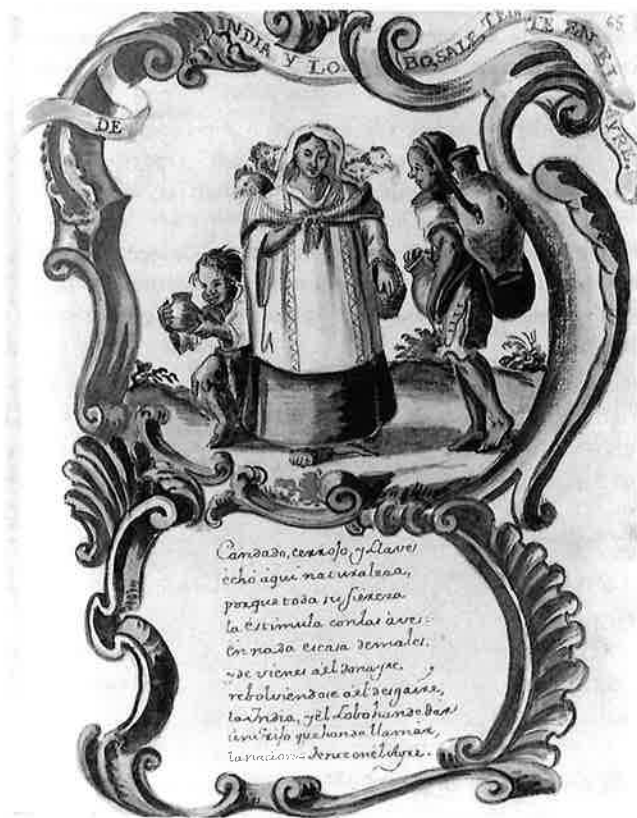 DE INDIA Y LO BO, SALE, TEN TE EN EL
65
Candado, cerrojo, y Llaves
echó aqui naturaleza,
porque toda su fiereza
la estimula con las aves:
en nada escasa de males,
de vienes a el donayre,
rebolviendose a el desgaire,
la India, y el Lobo han de dar
un Hijo que han de llamar,
la nacion en el Ayre.